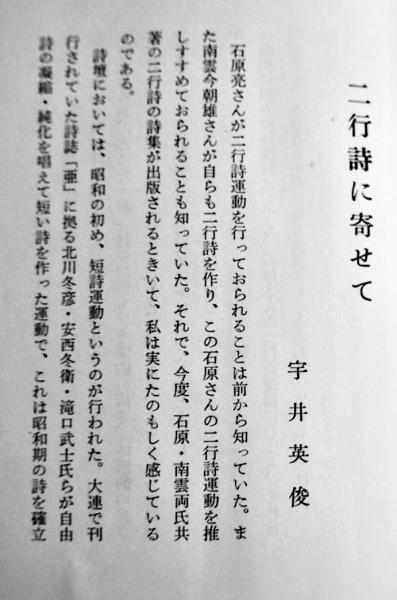 二行詩に寄せて
宇井英俊
石原亮さんが二行詩運動を行っておられることは前から知っていた。ま
た南雲今朝雄さんが自らも二行詩を作り、この石原さんの二行詩運動を推
しすすめておられることも知っていた。それで、今度、石原・南雲両氏共
著の二行詩の詩集が出版されるときいて、私は実にたのもしく感じている
のである。
詩壇においては、昭和の初め、短詩運動というのが行われた。大連で刊
行されていた詩誌「亜」に拠る北川冬彦・安西冬衛・滝口武士氏らが自由
詩の凝縮・純化を唱えて短い詩を作った運動で、これは昭和期の詩を確立